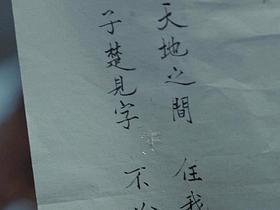 子楚見字 不
天地之間 任我